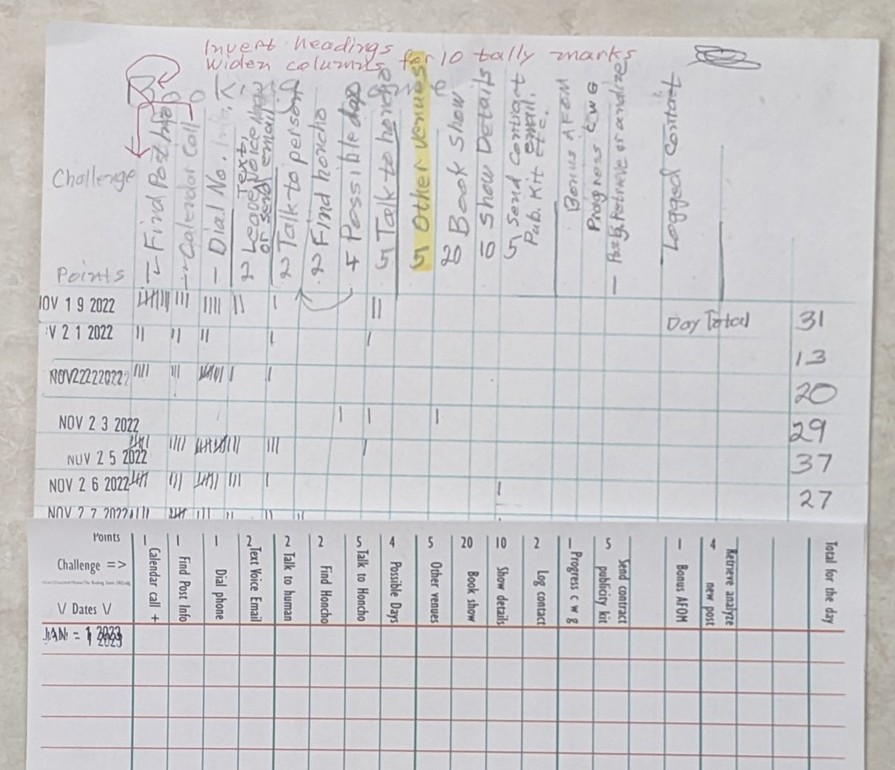 Invert headings
Widen columns for 10 tally marks
Challenge
Points
1 Find Post Info
1 Calendar Call
1 Dial No.
2 Text, Leave Voice
or send email
2 Talk to person
2 Find honcho
4 Possible dap
5 Talk to honcho
5 Other venues
20 Book Show
10 Show Details
5 Send Contract
Pub. Kit email.
Etc.
Bonus AFOM
Progress c w g
Logged contact
NOV 19 2022
Day Total 31
V 2 1 2022
13
NOV22222022
20
NOV 2 3 2022
29
NUV 2 5 2022
37
NOV 2 6 2022
27
NOV 2 7 2022
Points
Challenge =>
\/ Dates \/
1 Calendar call +
1 Find Post Info
1 Dial phone
2 Text Voice Email
2 Talk to human
2 Find Honcho
5 Talk to Honcho
4 Possible Days
5 Other venues
20 Book show
10 Show details
2 Log contact
1 Progress c w g
5 Send contract
publicity kit
1 Bonus AFOM
4 Retrieve analyze
new post
Total for the day
JAN = 1 2023